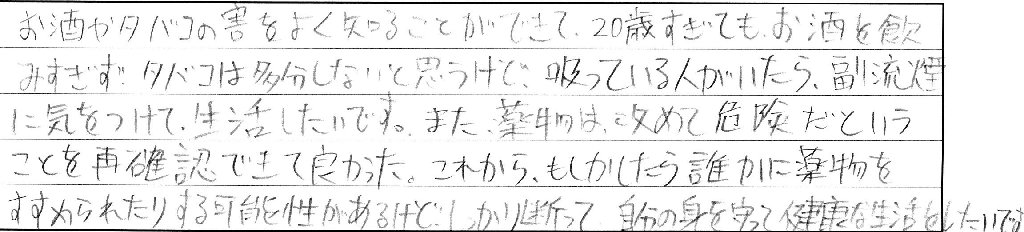 お酒やタバコの害をよく知ることができて、20歳すぎても、お酒を飲
みすぎず、タバコは多分しないと思うけど、吸っている人がいたら、副流煙
に気をつけて、生活したいです。また、薬物は、改めて危険だという
ことを再確認できて良かった。これから、もしかしたら誰かに薬物を
すすめられたりする可能性があるけど、しっかり断って、自分の身を守って健康な生活をしたいです